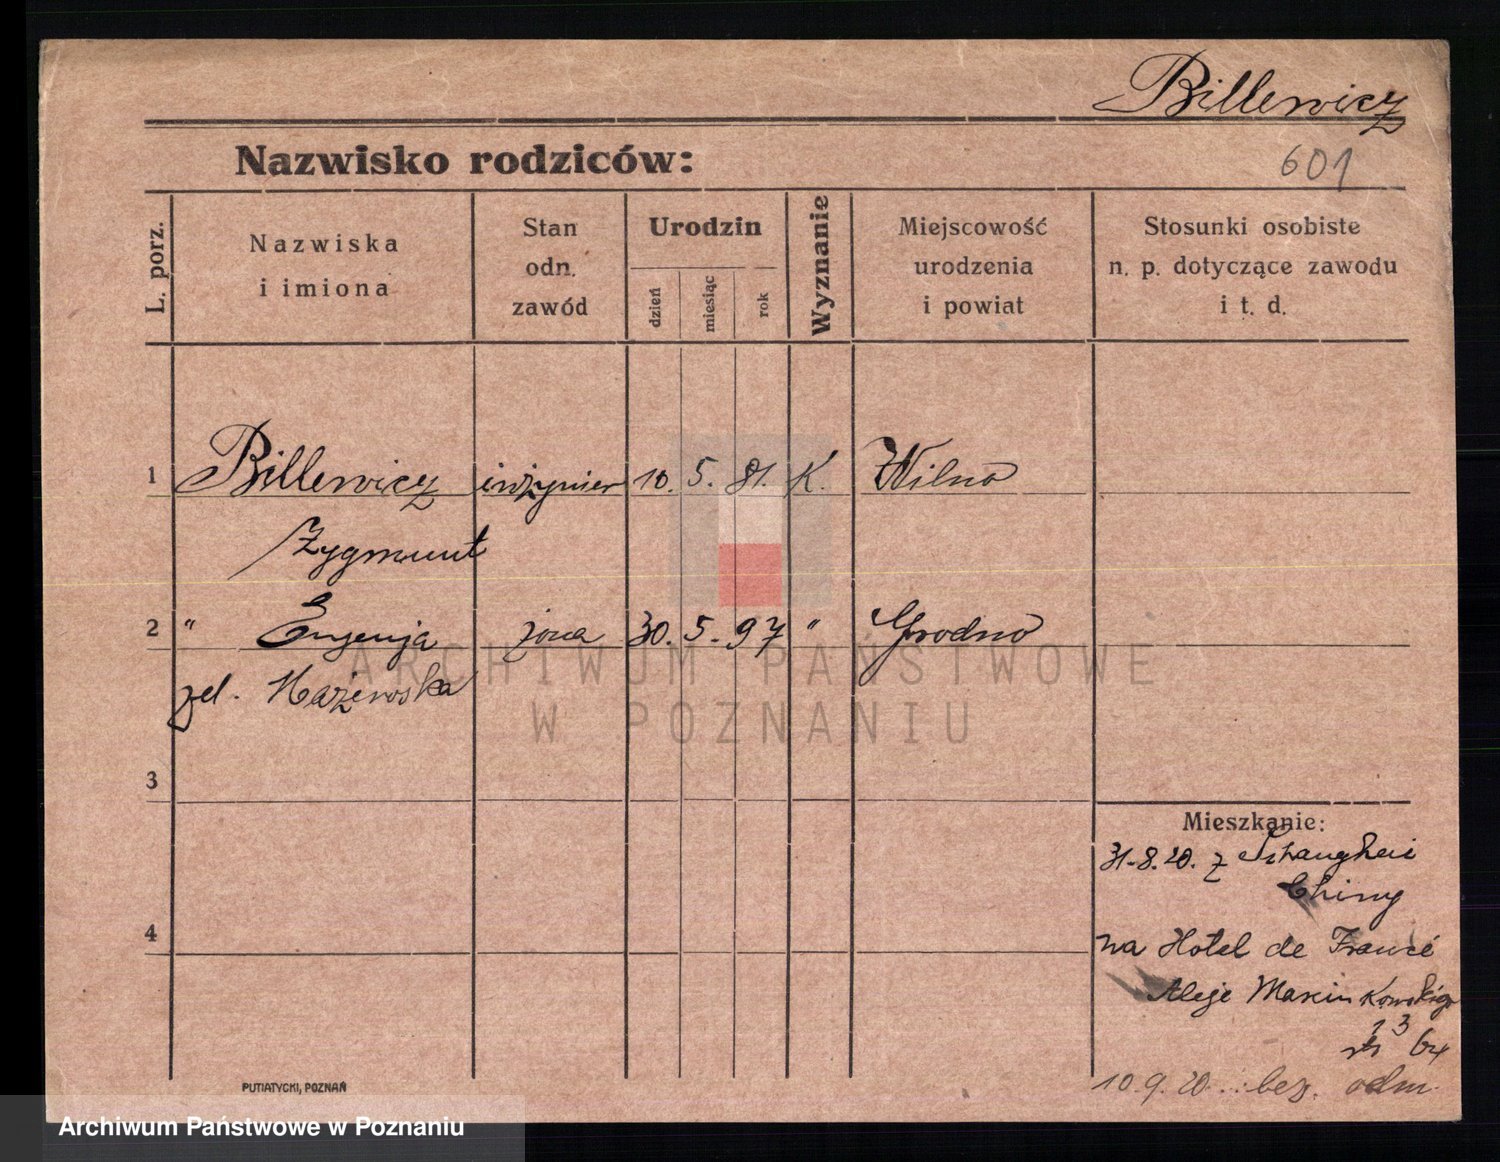 Billewicz
Nazwisko rodziców:
601
L. porz.
Nazwiska
i imiona
Stan
odn.
zawód
Urodzin
dzień
miesiąc
rok
Wyznanie
Miejscowość
urodzenia
i powiat
Stosunki osobiste
n. p. dotyczące zawodu
i t. d.
1 Billewicz inżynier 10. 5. 81. K. Wilno
Zygmunt
2 " Eugenja żona 30. 5. 97 " Grodno
zd. Hażewska
ARCHIWUM PAŃSTWOWE
W POZNANIU
3
Mieszkanie:
31.8.20. z Schanghei
Chiny
4
na Hotel de France
Aleje Marcinkowskiego
10.9.20... bez. odm.
PUTIATYCKI, POZNAŃ
Archiwum Państwowe w Poznaniu